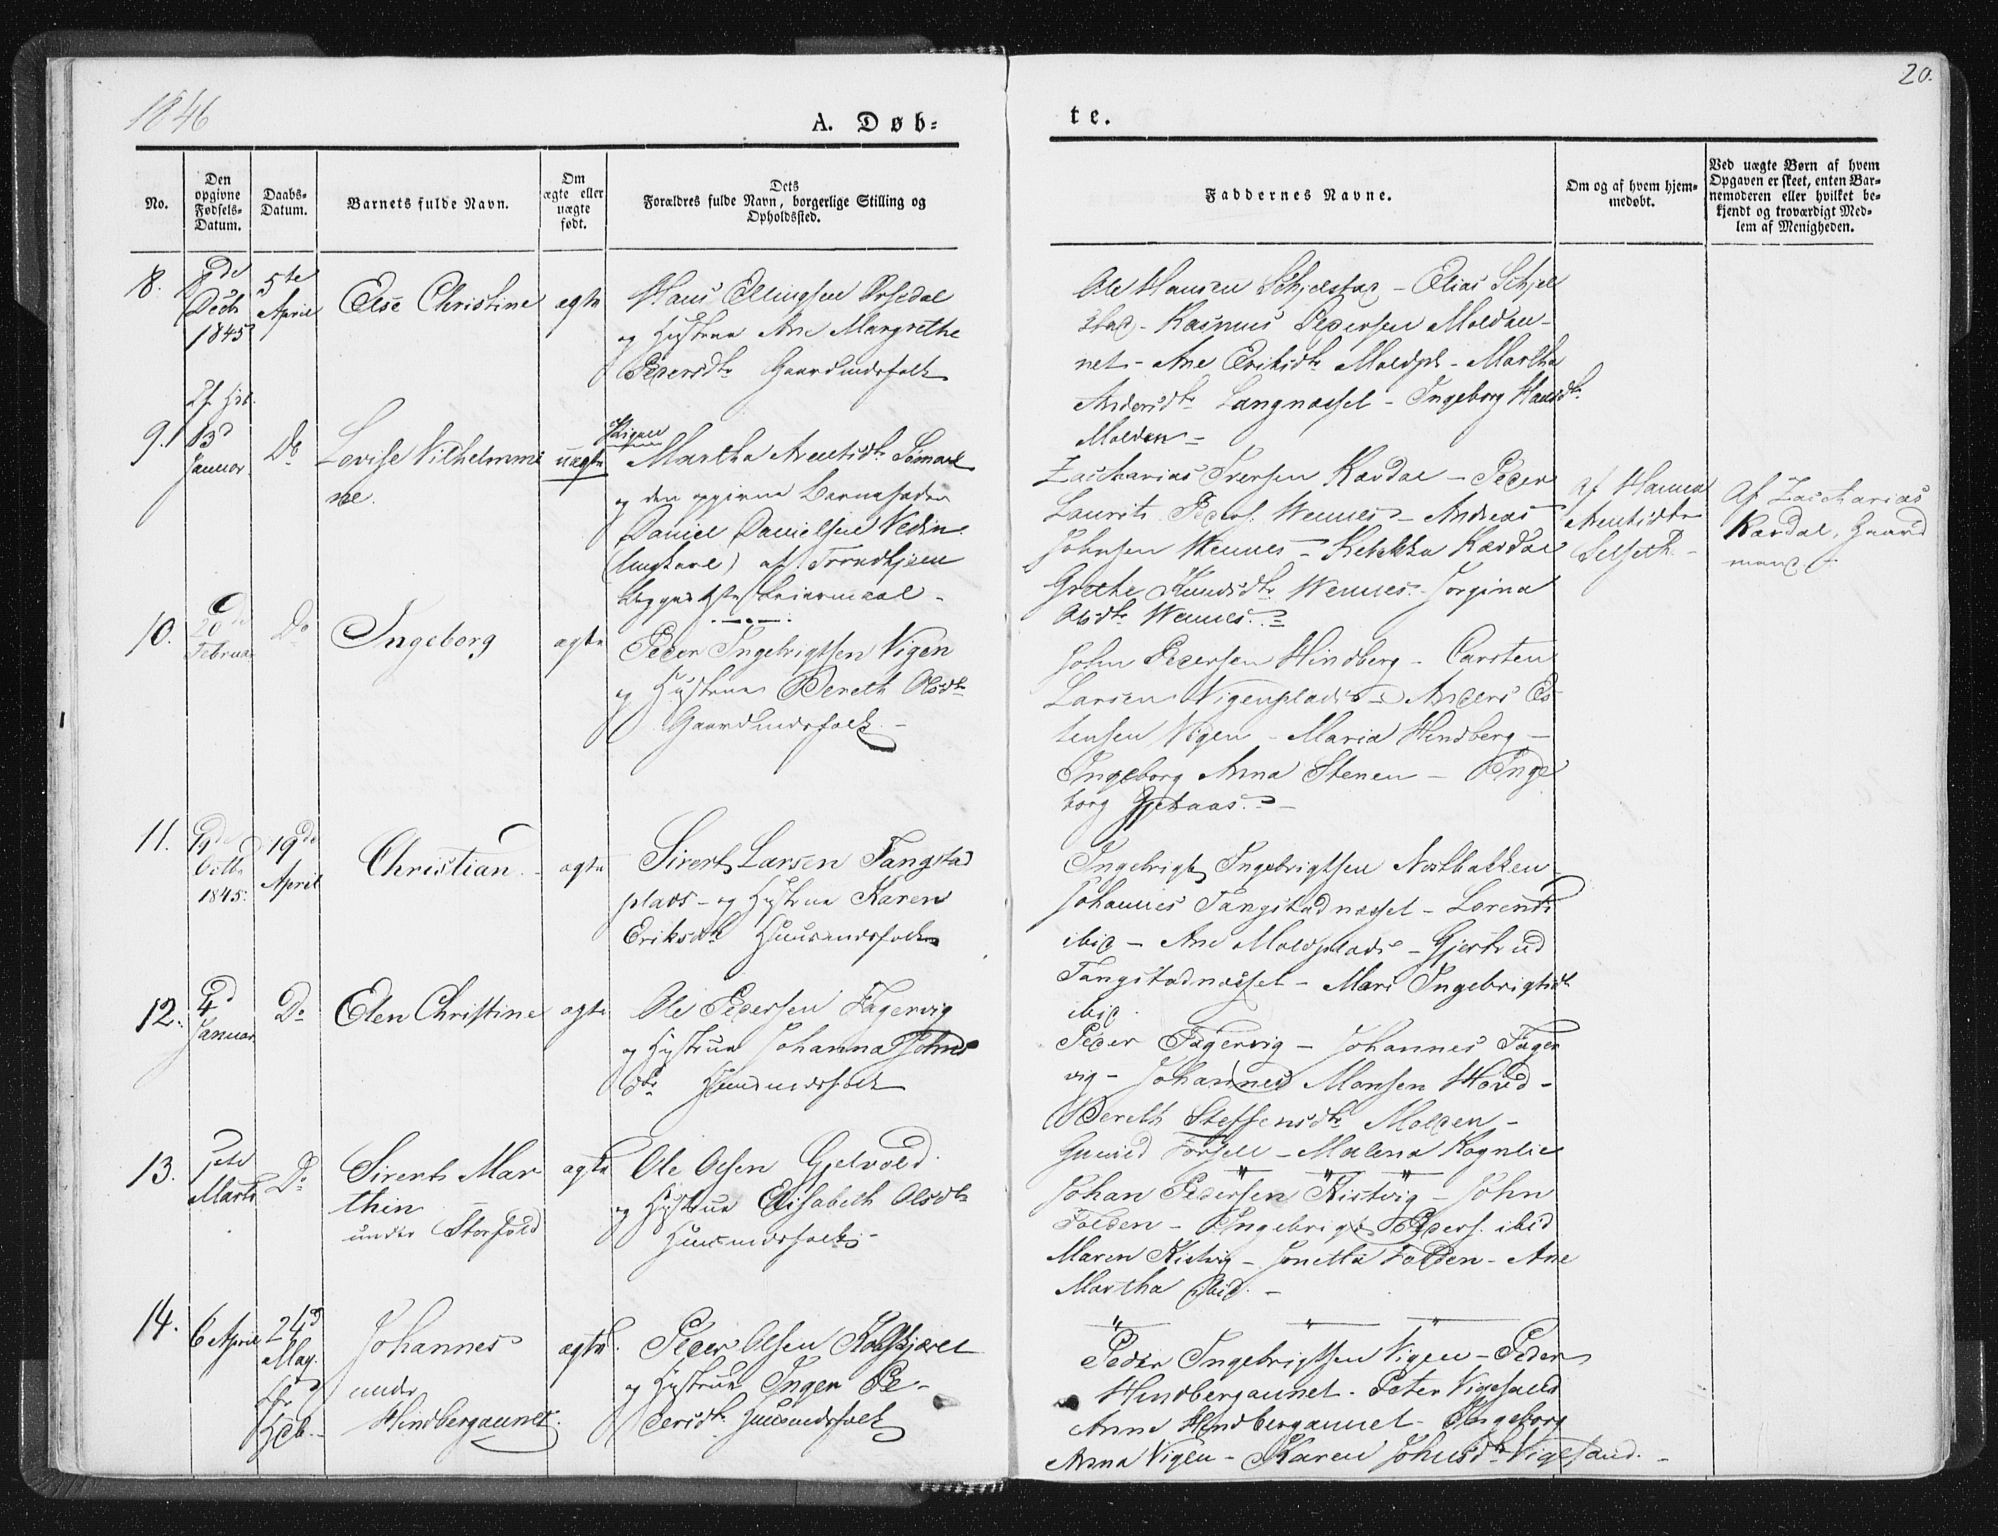 1846
A. Døb=
te.
20.
No.
Den opgivne Fødsels-Datum.
Daabs-Datum.
Barnets fulde Navn.
Om ægte eller uægte født.
Dets Forældres fulde Navn, borgerlige Stilling og Opholdssted.
Faddernes Navne.
Om og af hvem hjem-medøbt.
Ved uægte Børn af hvem Opgaven er skeet, enten Bar-nemoderen eller hvilket be-kjendt og troværdigt Med-lem af Menigheden.
8.
Decbr
1845
5te
April
Else Christine
ægte
Hans Ellingsen
og Hustrue Ane Margrethe
Pedersdtr Gaardmdsfolk
Ole Hansen Schjelstad - Elias Schjel
stad - Rasmus Pedersen Moldau-
net - Ane Eriksdtr Moldpl - Martha
Andersdtr Langnæsset - Ingeborg Hansdtr
Molden -
9.
13d
Januar
Do
Lovise Vilhelmmi
ne.
uægte
Pigen
Martha Arentsdtr
og den opgivne Barnefader
Daniel Danielsen
(Ungkarl) af Trondhjem
begges 1ste Leiermaal -
Zacharias Iversen Kavdal - Peder
Laurits Peders. Wennes - Andreas
Johnsen Wennes - Rebekka Kavdal
Grethe Knudsdtr Wennes - Jorgina
Olsdtr Wennes. -
af Hanna
Arentsdtr
Selseth -
Af Zacharias
Kavdal, Gaard
mand.
10.
20de
Februar
Do
Ingeborg
ægte
Peder Ingebrigtsen Vigen
og Hustrue Bereth Olsdtr
Gaardmdsfolk -
John Pedersen Hindberg - Carsten
Larsen Vigenplads - Anders Es
tensen Vigen - Maria Hindberg -
Ingeborg Anna Stenen - Inge
borg Gjetaas. -
11.
19de
Octbr
1845.
19de
April
Christian -
ægte
Sivert Larsen Tangstad
plads - og Hustrue Karen
Eriksdtr Huusmdsfolk
Ingebrigt Ingebrigtsen Nostbakken -
Johannes Tangstadnæsset - Lorents
ibid - Ane Moldplads - Gjertrud
Tangstadnæsset - Mari Ingebrigtsdt
ibid.
12.
4d
Januar
Do
Elen Christine
ægte
Ole Pedersen Fagervig
og Hustrue Johanna Johns
dtr Huusmdsfolk
Peder Fagervig - Johannes Fager
vig - Johannes Monsen Hovd -
Bereth Steffensdtr Molden -
Gunild Forsell - Malena Rognlie
13.
1ste
Marts
Do
Sivert Mar
thin
under Storfold
ægte
Ole Olsen Gjelvold
og Hustrue Elisabeth Olsdtr
Huusmdsfolk -
Johan Pedersen Kistvig - John
Folden - Ingebrigt Peders. ibid
Maren Kistvig - Jonetta Folden - Ane
Martha ibid. -
14.
6 April
24d
May
Johannes
under
Hindbergaunet.
ægte.
Peder Olsen
og Hustrue Inger Pe-
dersdtr Huusmdsfolk
Peder Ingebrigtsen Vigen - Peder
Hindbergaunet - Peter Vigesand
Anne Hindbergaunet - Ingeborg
Anna Vigen - Karen Johnsdtr Vigesand. -